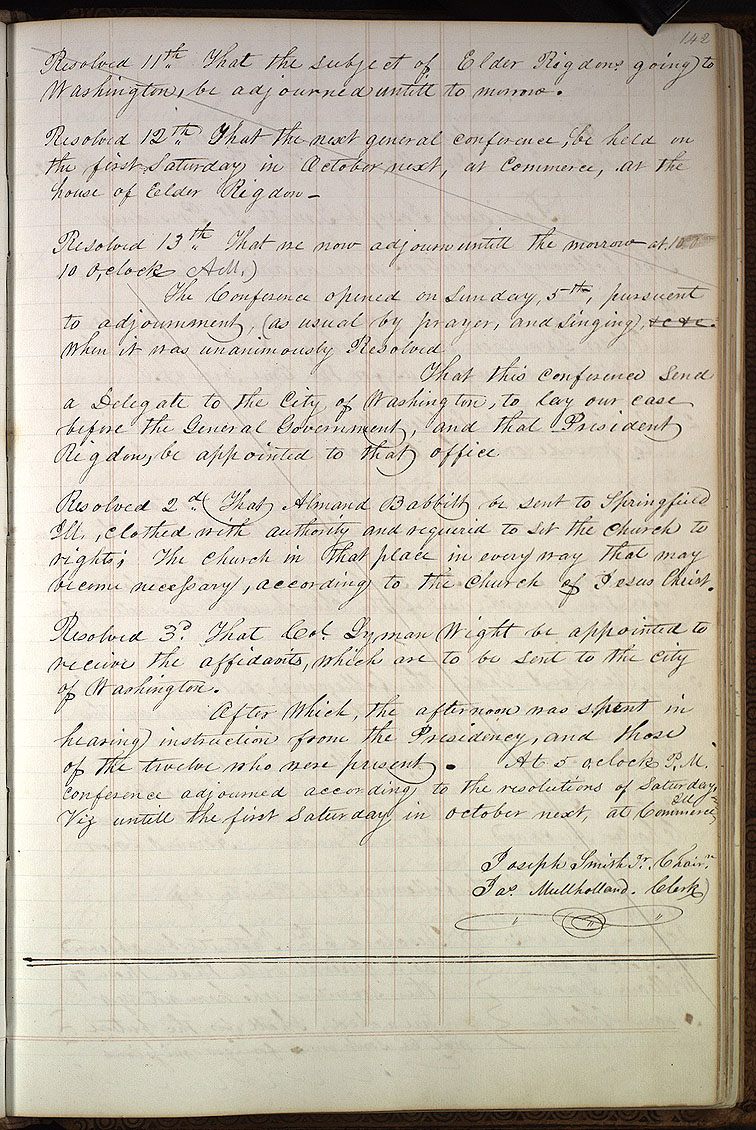 142
Resolved 11th That the subject of Elder Rigdons going to
Washington, be adjourned untill to morrow.
Resolved 12th That the next general conference, be held on
the first Saturday in October next, at Commerce, at the
house of Elder Regdon—
Resolved 13th That we now adjourn untill the morrow at 10
10 O,clock A.M.)
The Conference opened on Sunday, 5th, pursuent
to adjournment, (as usual by prayer, and Singing), &c &c.
When it was unanimously Resolved
That this conference Send
a Delegate to the City of Washington, to lay our case
before the General Government, and that President
Rigdon, be appointed to that office
Resolved 2d That Almand Babbitt be sent to Springfield
Ill., clothed with authority and required to set the Church to
rights; The church in that place in every way that may
become necessary, according to the Church of Jesus Christ.
Resolved 3d. That Col. Lyman Wight be appointed to
receive the affidavits, which are to be sent to the City
of Washington.
After Which, the afternoon was spent in
hearing instruction from the Presidency, and those
of the twelve who were present. At 5 oclock P.M.
Conference adjourned according to the resolutions of Saturday,
Viz untill the first Saturday in October next, at Commerce
Ill—
Joseph Smith Jr. Chairn.
Jas. Mullholland. Clerk